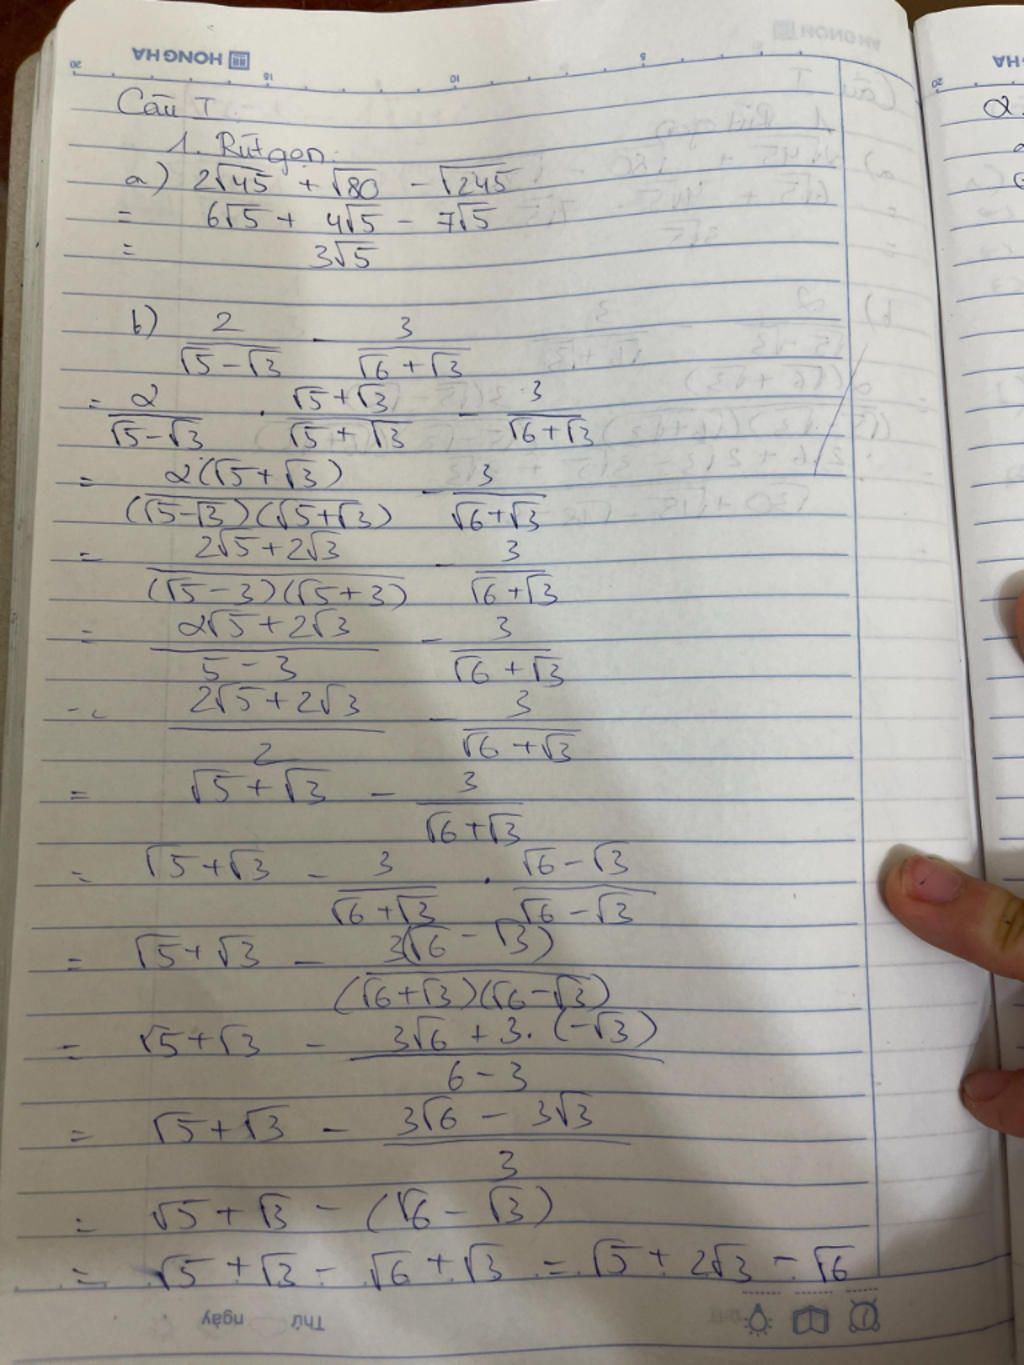 HONG HA
20 15 10 5
Câu I
1. Rút gọn:
a) 2√45 + √80 - √245
= 6√5 + 4√5 - 7√5
= 3√5
b) 2/(√5-√3) - 3/(√6+√3)
= 2/(√5-√3) . (√5+√3)/(√5+√3) - 3/(√6+√3)
= 2(√5+√3)/((√5-√3)(√5+√3)) - 3/(√6+√3)
= (2√5+2√3)/((√5-3)(√5+3)) - 3/(√6+√3)
= (2√5+2√3)/(5-3) - 3/(√6+√3)
= (2√5+2√3)/2 - 3/(√6+√3)
= √5+√3 - 3/(√6+√3)
= √5+√3 - 3/(√6+√3) . (√6-√3)/(√6-√3)
= √5+√3 - 3(√6-√3)/((√6+√3)(√6-√3))
= √5+√3 - (3√6+3.(-√3))/(6-3)
= √5+√3 - (3√6-3√3)/3
= √5+√3 - (√6-√3)
= √5+√3 - √6+√3 = √5+2√3-√6
Thứ ngày